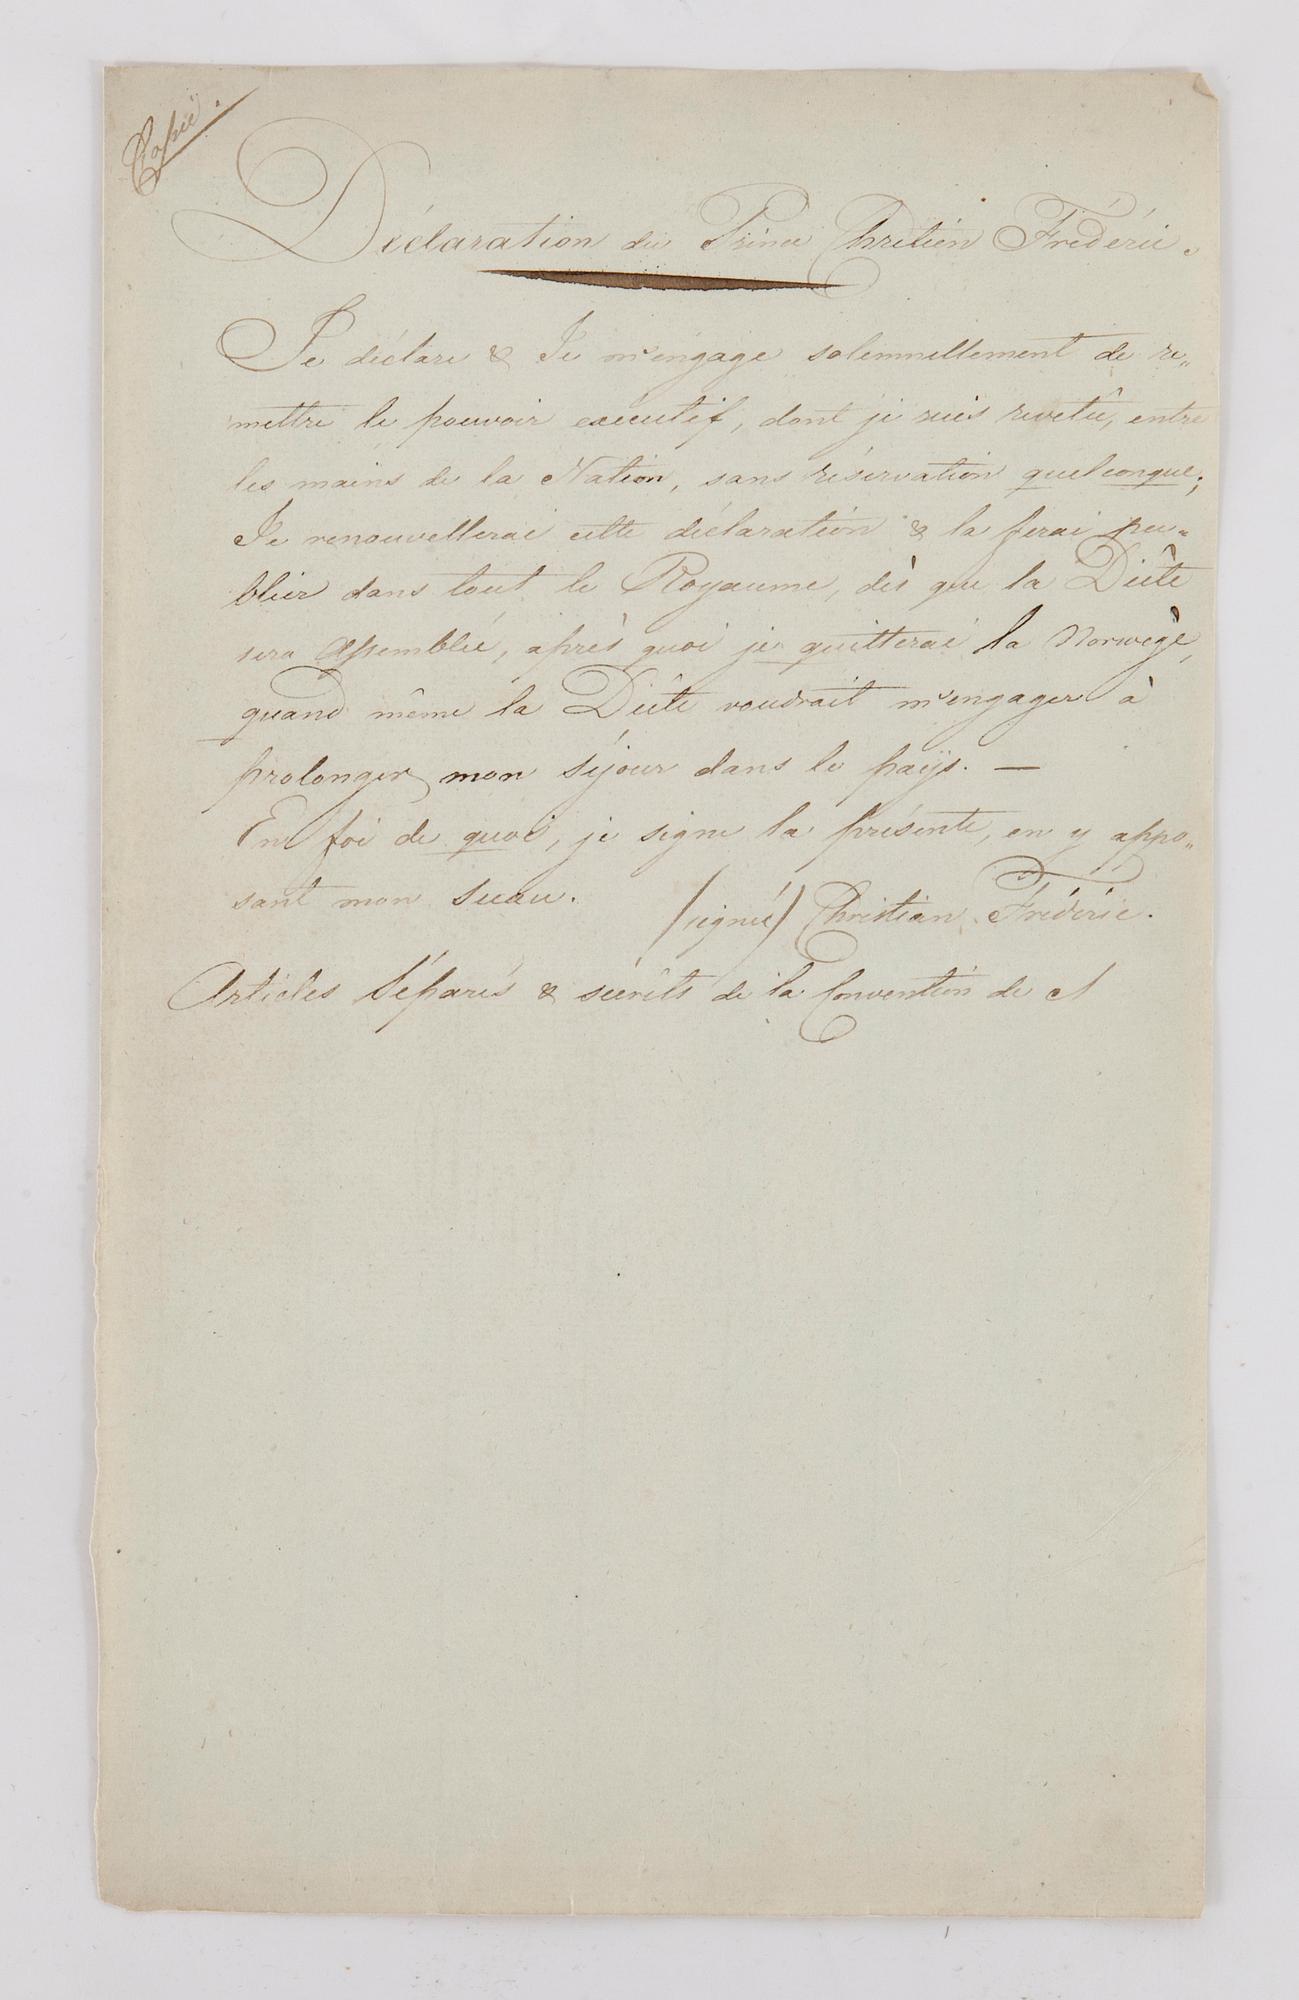 Copië.
Déclaration du Prince Chrétien Fréderic.
Je déclare & Je m'engage solemnellement de re„
mettre le pouvoir executif, dont je suis revetû, entre
les mains de la Nation, sans réservation quelconque;
Je renouvellerai cette déclaration & la ferai pu„
blier dans tout le Royaume, dès que la Diête
sera Assemblée, après quoi je quitterai la Norwège,
quand même la Diête voudrait m'engager à
prolonger mon séjour dans le paÿs. —
En foi de quoi, je signe la présente, en y appo„
sant mon sceau. (signé) Christian Fréderic.
Articles Séparés & secrêts de la Convention de